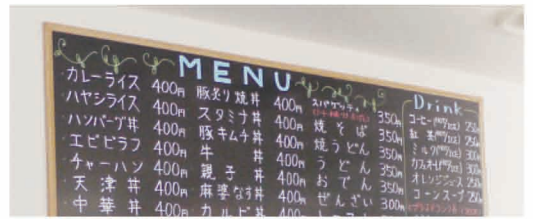 MENU
カレーライス 400円
ハヤシライス 400円
ハンバーグ丼 400円
エビピラフ 400円
チャーハン 400円
天津丼 400円
中華丼 400円
豚炙り焼丼 400円
スタミナ丼 400円
豚キムチ丼 400円
牛丼 400円
親子丼 400円
麻婆なす丼 400円
カルビ丼
スパゲッティ 350円
焼そば 350円
焼うどん 350円
うどん 350円
おでん 350円
ぜんざい 300円
Drink
コーヒー 250円
紅茶 250円
ミルク 300円
カフェオレ 300円
オレンジジュース 250円
コーンスープ 250円